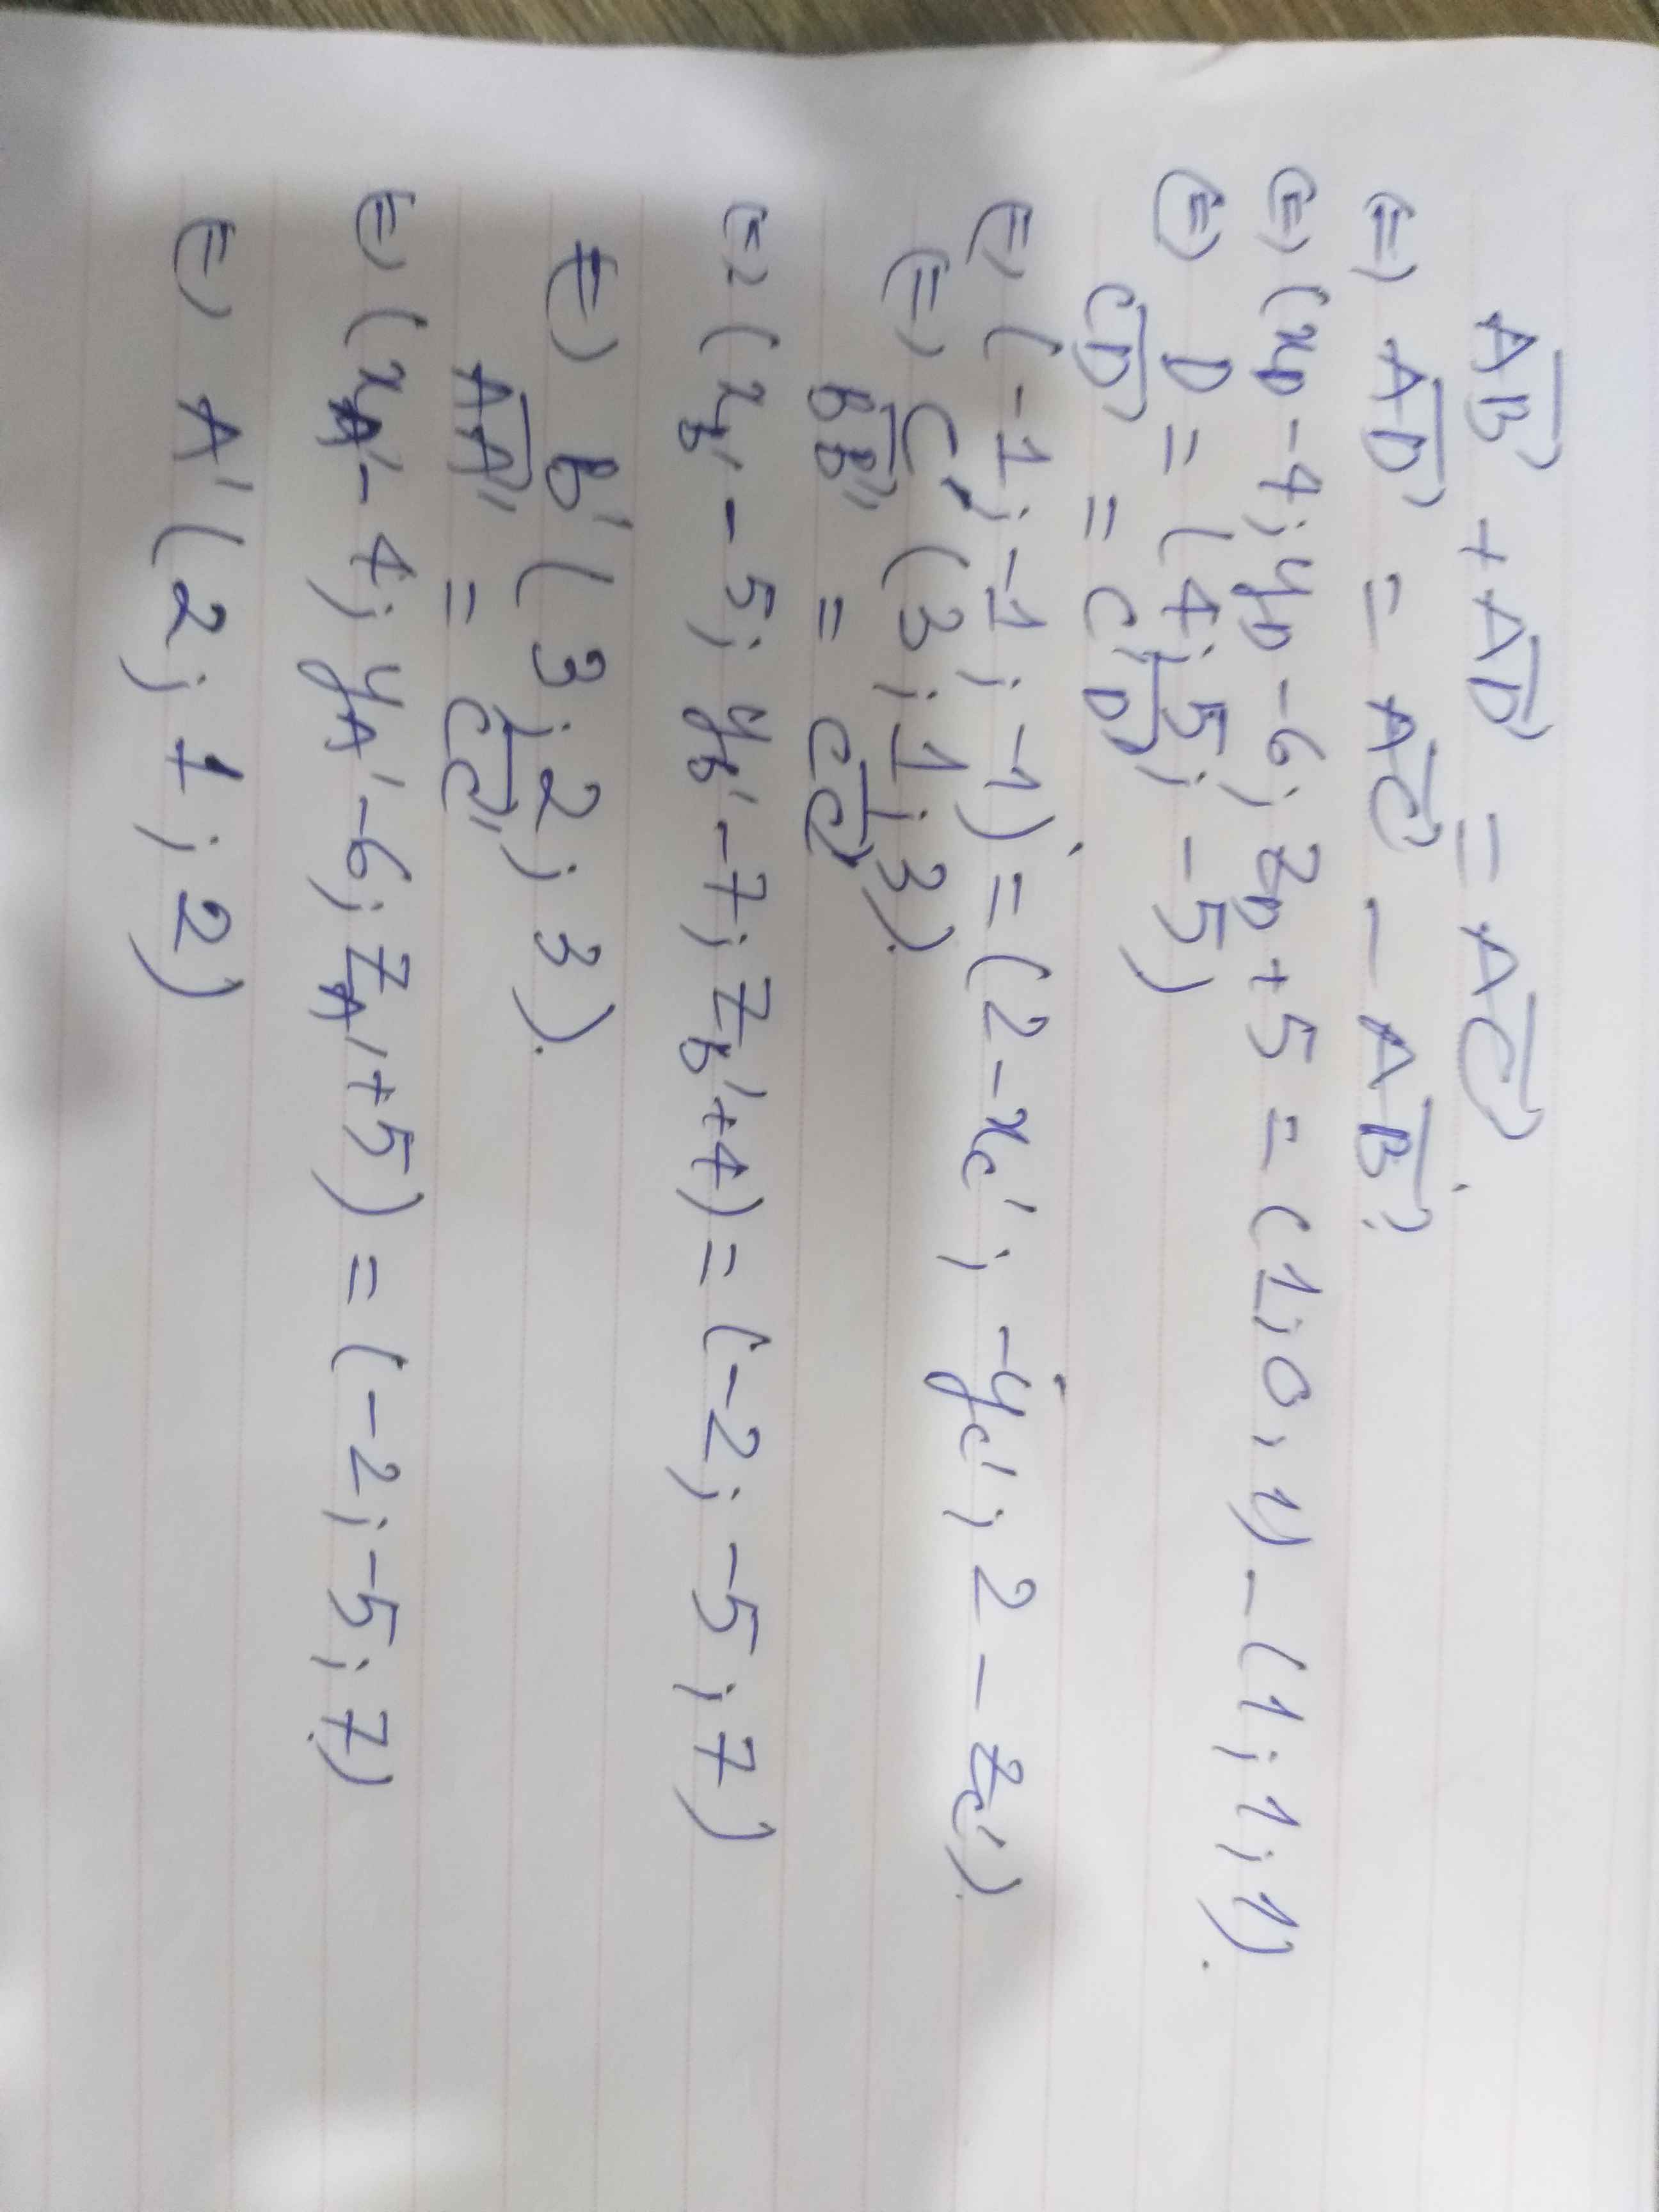 AB + AD = AC.
(=) AD = AC - AB.
(=) (xD - 4; yD - 6; zD + 5 = (1; 0; 1) - (1; 1; 1).
(=) D = (4; 5; -5)
CD = C'D'.
(=) (-1; -1; -1) = (2 - xC'; -yC'; 2 - zC').
(=) C' (3; 1; 3).
BB' = CC'
(=) (xB' - 5; yB' - 7; zB' + 4) = (-2; -5; 7)
(=) B' (3; 2; 3).
AA' = CC'
(=) (xA' - 4; yA' - 6; zA' + 5) = (-2; -5; 7)
(=) A' (2; 1; 2)